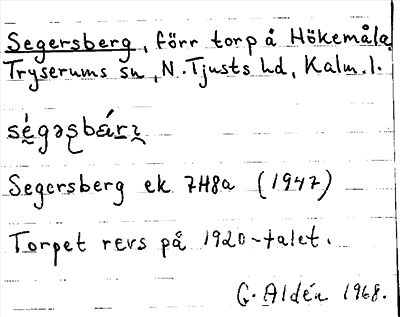 Segersberg, förr torp å Hökemåla,
Tryserums sn, N. Tjusts hd, Kalm. l.
Segersberg ek 7H8a (1947)
Torpet revs på 1920-talet.
G. Aldén 1968.